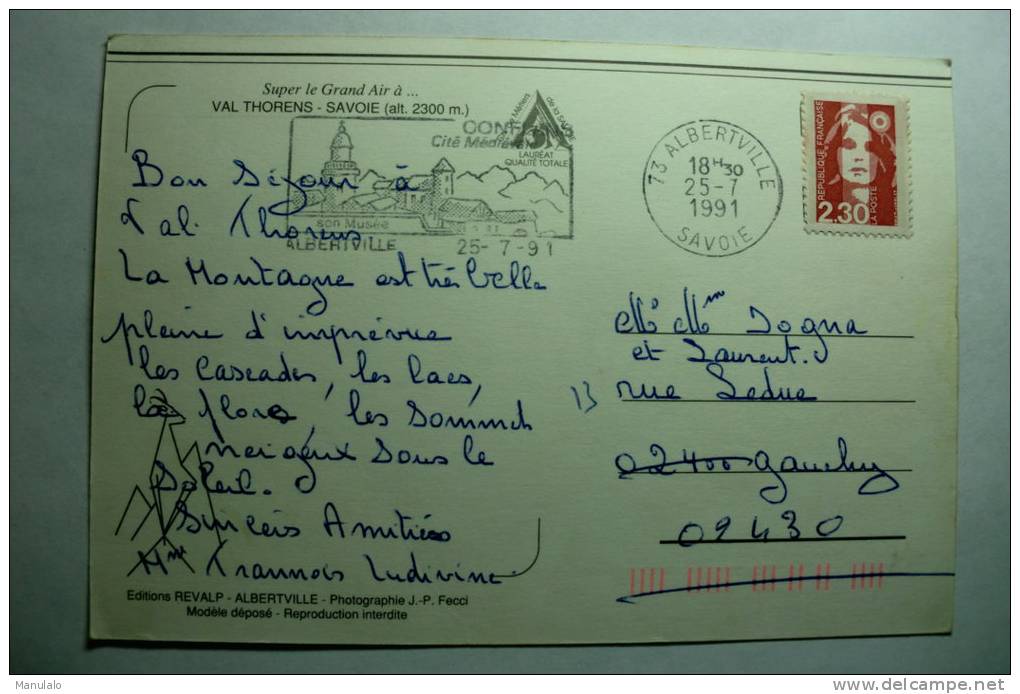 Super le Grand Air à ...
VAL THORENS - SAVOIE (alt. 2300 m.)
Cité Médiévale
son Musée
ALBERTVILLE 25-7-91
de la SAVOIE
LAURÉAT
QUALITÉ TOTALE
73 ALBERTVILLE
18H30
25-7
1991
SAVOIE
RÉPUBLIQUE FRANÇAISE
2.30
LA POSTE
Bon Séjour à
Val. Thorens
La Montagne est très belle
pleine d'imprévue
les Cascades, les lacs,
la flore, les Sommets
neigeux Sous le
Soleil.
Sincères Amitiés
Mme Trannois Ludivine
Mr Mme Dogna
et Laurent.
13 rue Leduc
02400 Gauchy
02430
Editions REVALP - ALBERTVILLE - Photographie J.-P. Fecci
Modèle déposé - Reproduction interdite
Manulalo
www.delcampe.net